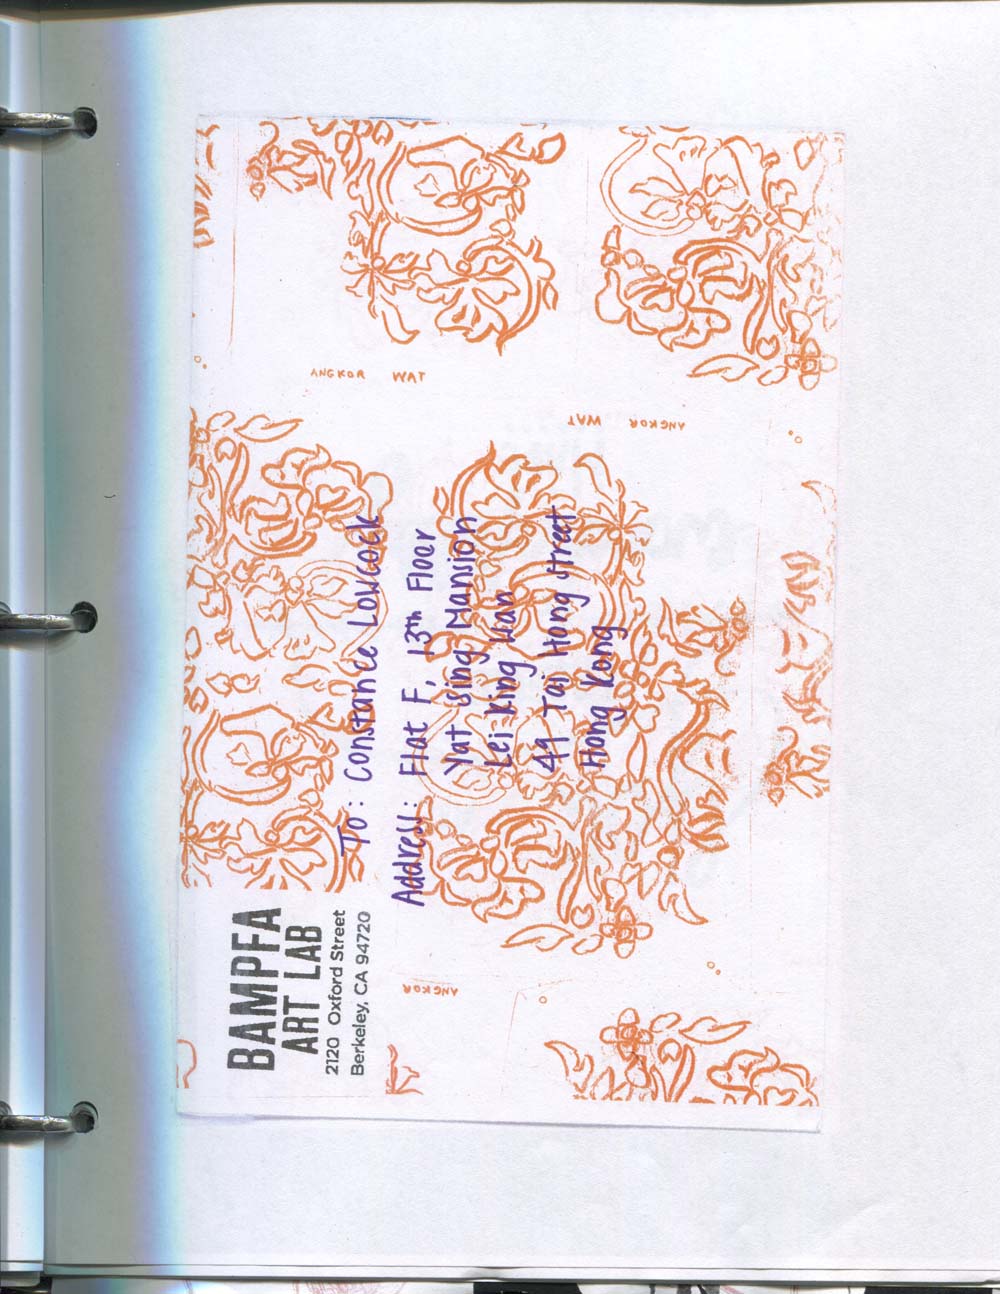 BAMPFA
ART LAB
2120 Oxford Street
Berkeley, CA 94720
To: Constance Lowcock
Address: Flat F, 13th Floor
Yat Sing Mansion
Lei King Wan
49 Tai Hong Street
Hong Kong
ANGKOR WAT
ANGKOR WAT
ANGKOR